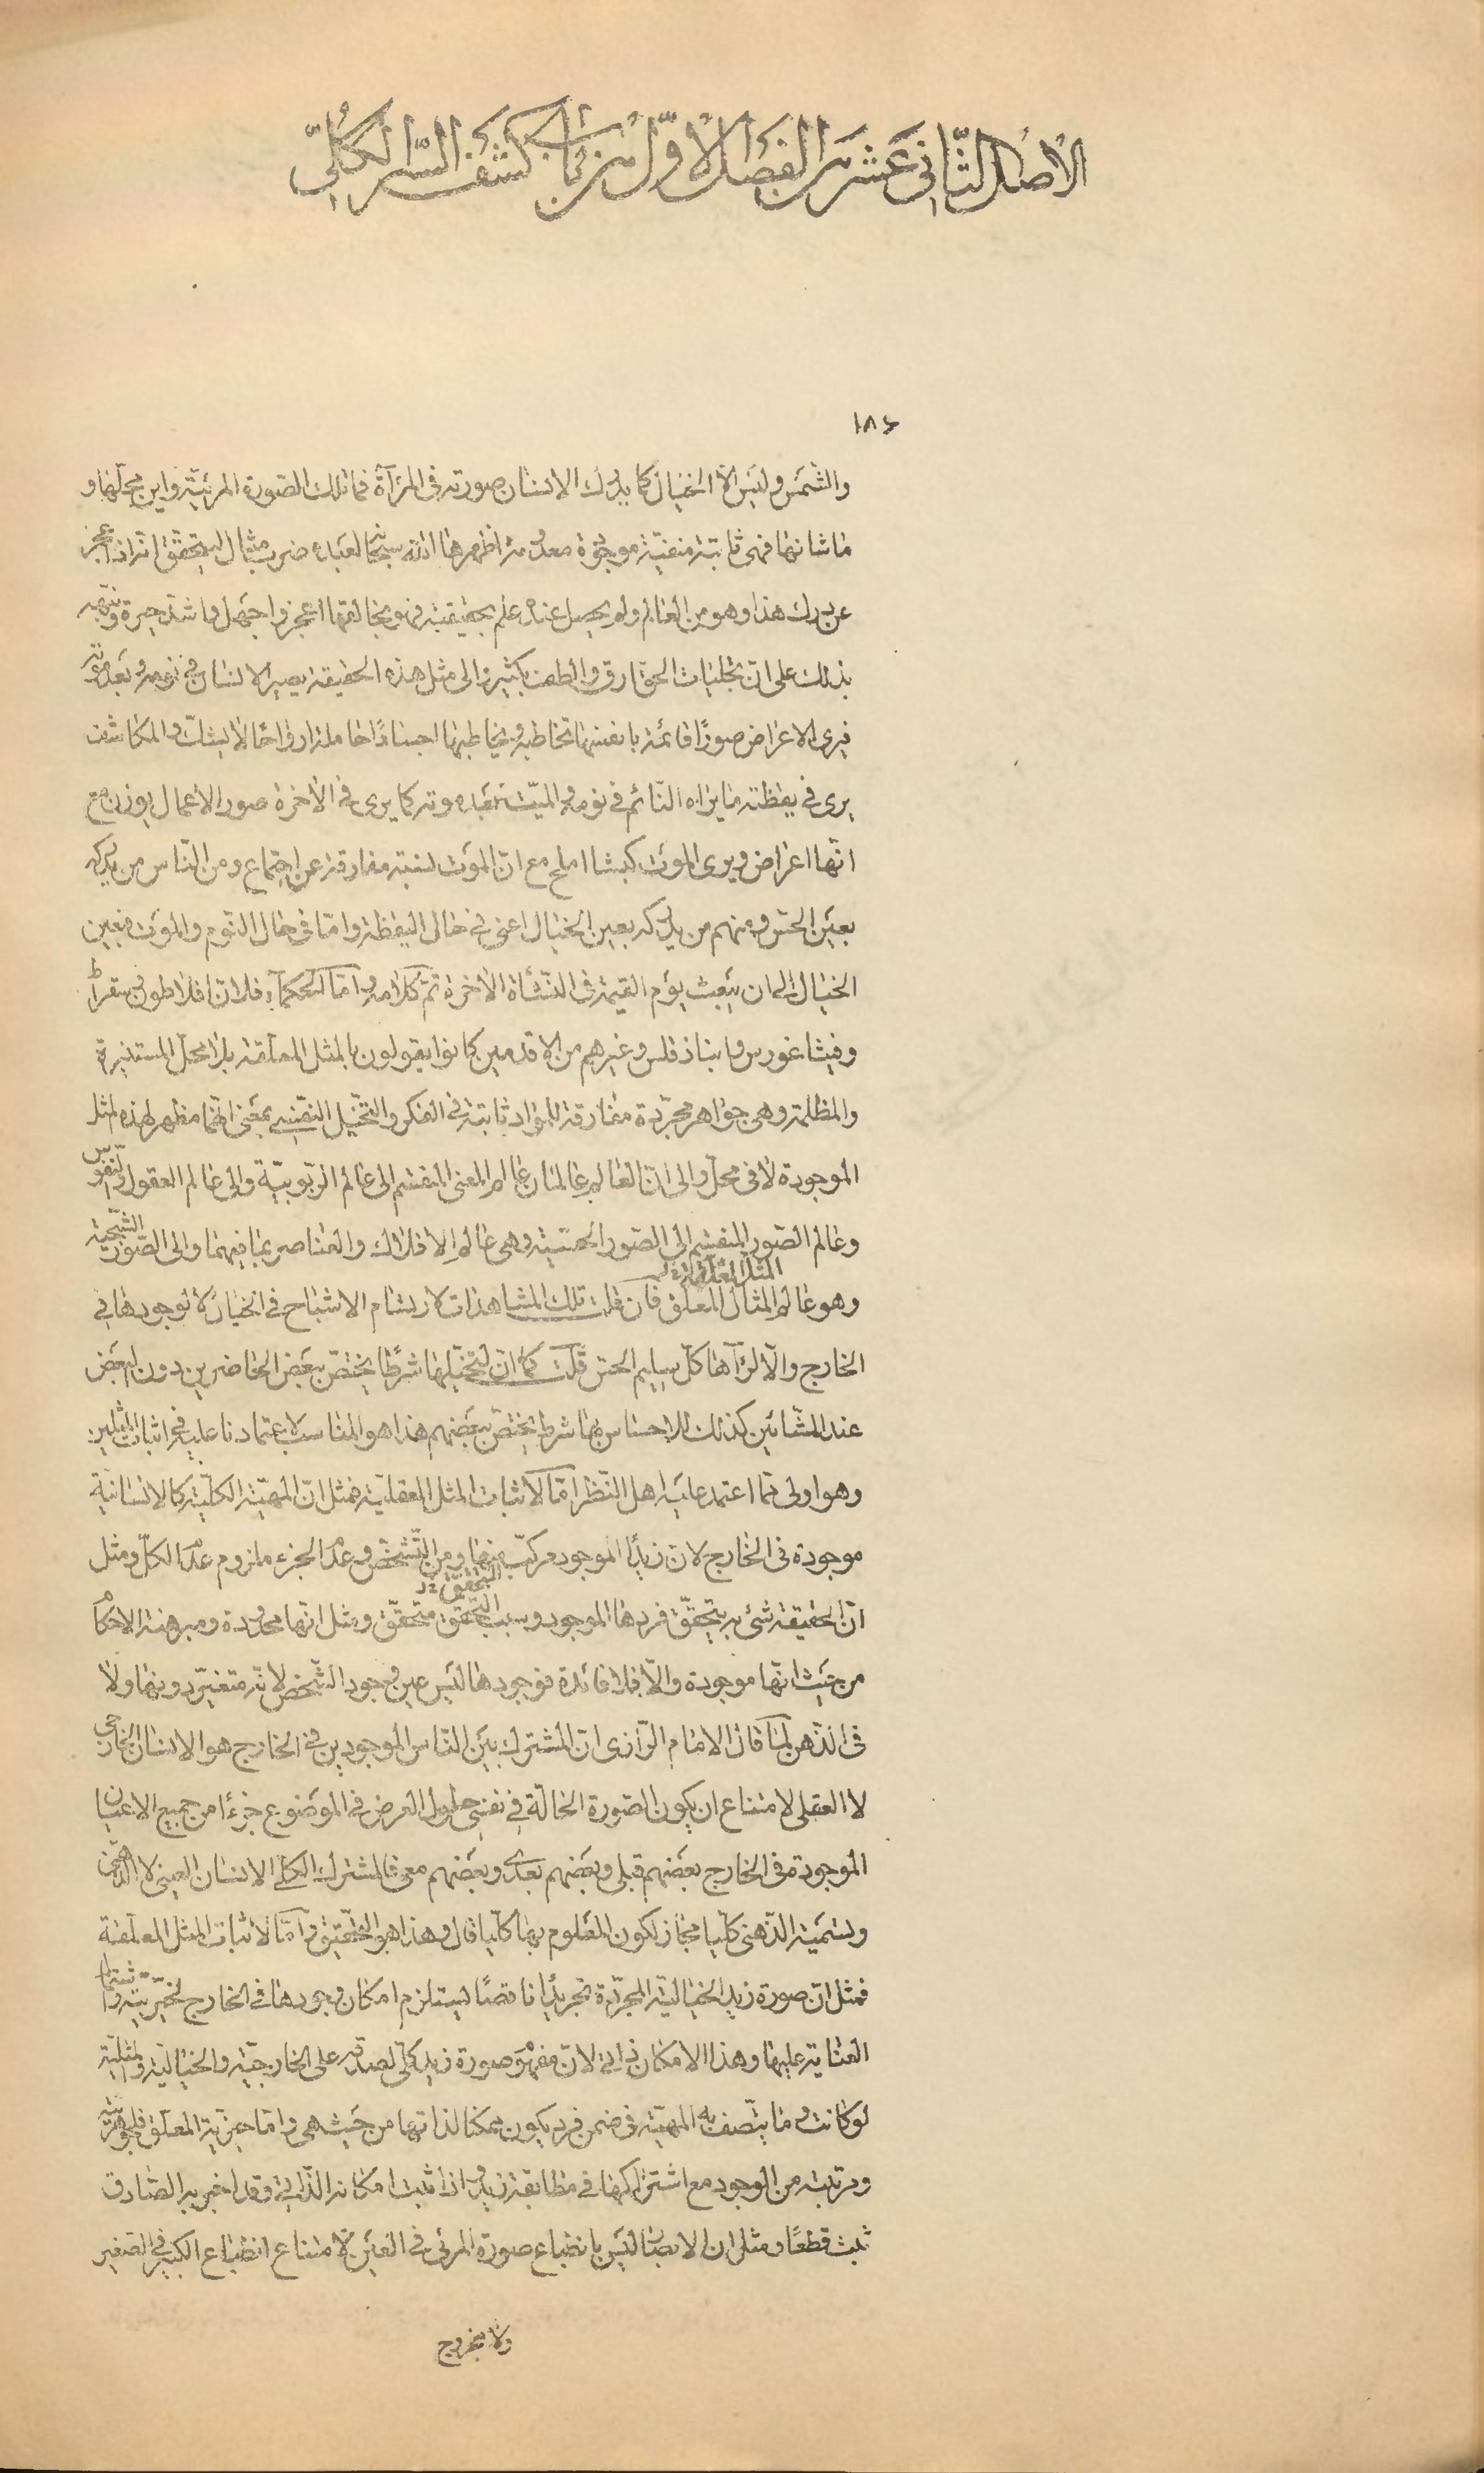 الاصل الثّانى عشر من الفصل الاوّل من باب كشف السّر الكلّى
١٨٤
والشمس وليس الا الخيال كما يدرك الانسان صورته فى المرآة فما تلك الصّورة المرئيّة واين محلّها و
ما شانها فهى ثابتة منفيّة موجودة معدومة اظهرها الله سبحانه لعباده ضرب مثال ليتحقّق انّه اذا عجز
عن درك هذا وهو من العالم ولم يحصل عنده علم بحقيقته فهو بخالقها اعجز واجهل واشدّ حيرة ونبّه
بذلك على انّ تجليات الحق ارق والطف بكثير والى مثل هذه الحقيقة يصير الانسان فى نومه وبعد موته
فيرى الاعراض صورًا قائمة بانفسها تخاطبه ويخاطبها اجسادًا حاملة ارواحًا لا يشكّ والمكاشف
يرى فى يقظته ما يراه النّائم فى نومه والميّت بعد موته كما يرى فى الآخرة صور الاعمال يوزن مع
انّها اعراض ويرى الموت كبشا املح مع انّ الموت نسبته مفارقة عن اجتماع ومن النّاس من يدركه
بعين الحسّ ومنهم من يدركه بعين الخيال اعنى فى حال اليقظة وامّا فى حال النّوم والموت فبعين
الخيال الى ان يبعث يوم القيمة فى النشأة الآخرة تمّ كلامه وامّا الحكماء فلانّ افلاطون وسقراط
وفيثاغورس وانباذقلس وغيرهم من الاقدمين كانوا يقولون بالمثل المعلّقة بلا محلّ المستنيرة
والمظلمة وهى جواهر مجرّدة مفارقة للموادّ ثابتة فى الفكر والتّخيّل النّفسى بمعنى انّهما مظهر لهذه المثل
الموجودة لا فى محلّ والى انّ العالم عالمان عالم المعنى المنقسم الى عالم الرّبوبيّة والى عالم العقول والنّفوس
وعالم الصّور المنقسم الى الصّور الحسّيّة وهى عالم الافلاك والعناصر بما فيهما والى الصّور الشّبحيّة
وهو عالم المثال المعلّق فان قلت تلك المشاهدات لارتسام الاشباح فى الخيال لا لوجودها فى
الخارج والّا لرآها كلّ سليم الحسّ قلت كما انّ لتخيّلها شرطًا يختصّ ببعض الحاضرين دون البعض
عند المشّائين كذلك للاحساس بها شرط يختصّ ببعضهم هذا هو المناسب لاعتمادنا عليه فى اثبات المثلين
وهو اولى ممّا اعتمد عليه اهل النّظر امّا لاثبات المثل العقليّة فمثل انّ المهيّة الكلّيّة كالانسانيّة
موجودة فى الخارج لانّ زيدًا الموجود مركّب منها ومن التّشخّص وعدم الجزء ملزوم عدم الكلّ ومثل
انّ الحقيقة شئ به يتحقّق فردها الموجود وسبب التّحقّق متحقّق ومثل انّها محدودة ومبرهنة الاحكام
من حيث انّها موجودة والّا فلا فائدة فوجودها ليس عين وجود الشّخص لانّه متغيّر دونها ولا
فى الذّهن لما قال الامام الرّازى انّ المشترك بين النّاس الموجودين فى الخارج هو الانسان الخارجى
لا العقلى لامتناع ان يكون الصّورة الحالّة فى نفسى حلول العرض فى الموضوع جزءًا من جميع الاعيان
الموجودة فى الخارج بعضهم قبلى وبعضهم بعدى وبعضهم معى فالمشترك الكلّى الانسان العينى لا الذّهنى
وتسمية الذّهنى كلّيا مجاز لكون المعلوم بها كلّيا قال وهذا هو التّحقيق وامّا لاثبات المثل المعلّقة
فمثل انّ صورة زيد الخياليّة المجرّدة تجريدًا ناقصًا يستلزم امكان وجودها فى الخارج
العناية عليها وهذا الامكان ذاتى لانّ مفهوم صورة زيد كلّى لصدقه على الخارجيّة والخياليّة والمثليّة
لو كانت وما يتّصف به المهيّة فى ضمن فرد يكون ممكنا لذاتها من حيث هى وامّا المعلّق
ومرتبته من الوجود مع اشتراكها فى مطابقة زيد واذا ثبت امكانه الذّاتى وقد اخبر به الصّادق
ثبت قطعًا ومثل ان الابصار ليس بانطباع صورة المرئى فى العين لامتناع انطباع الكبير فى الصغير
ولا بخروج